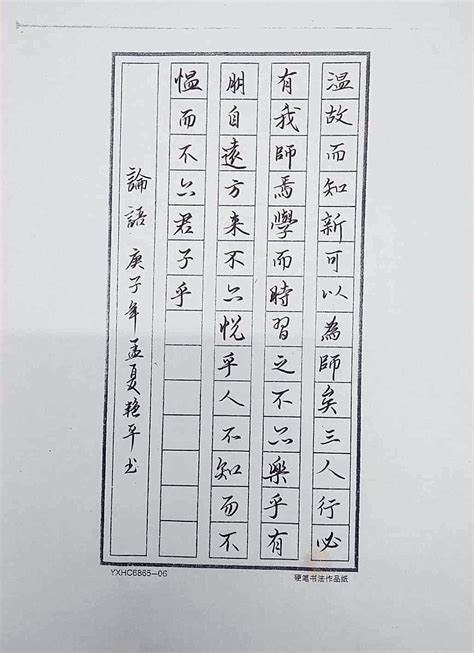 温故而知新可以為師矣三人行必
有我師焉學而時習之不亦樂乎有
朋自遠方来不亦悦乎人不知而不
愠而不亦君子乎
論語 庚子年孟夏艳平书
YXHC6865-06
硬笔书法作品纸